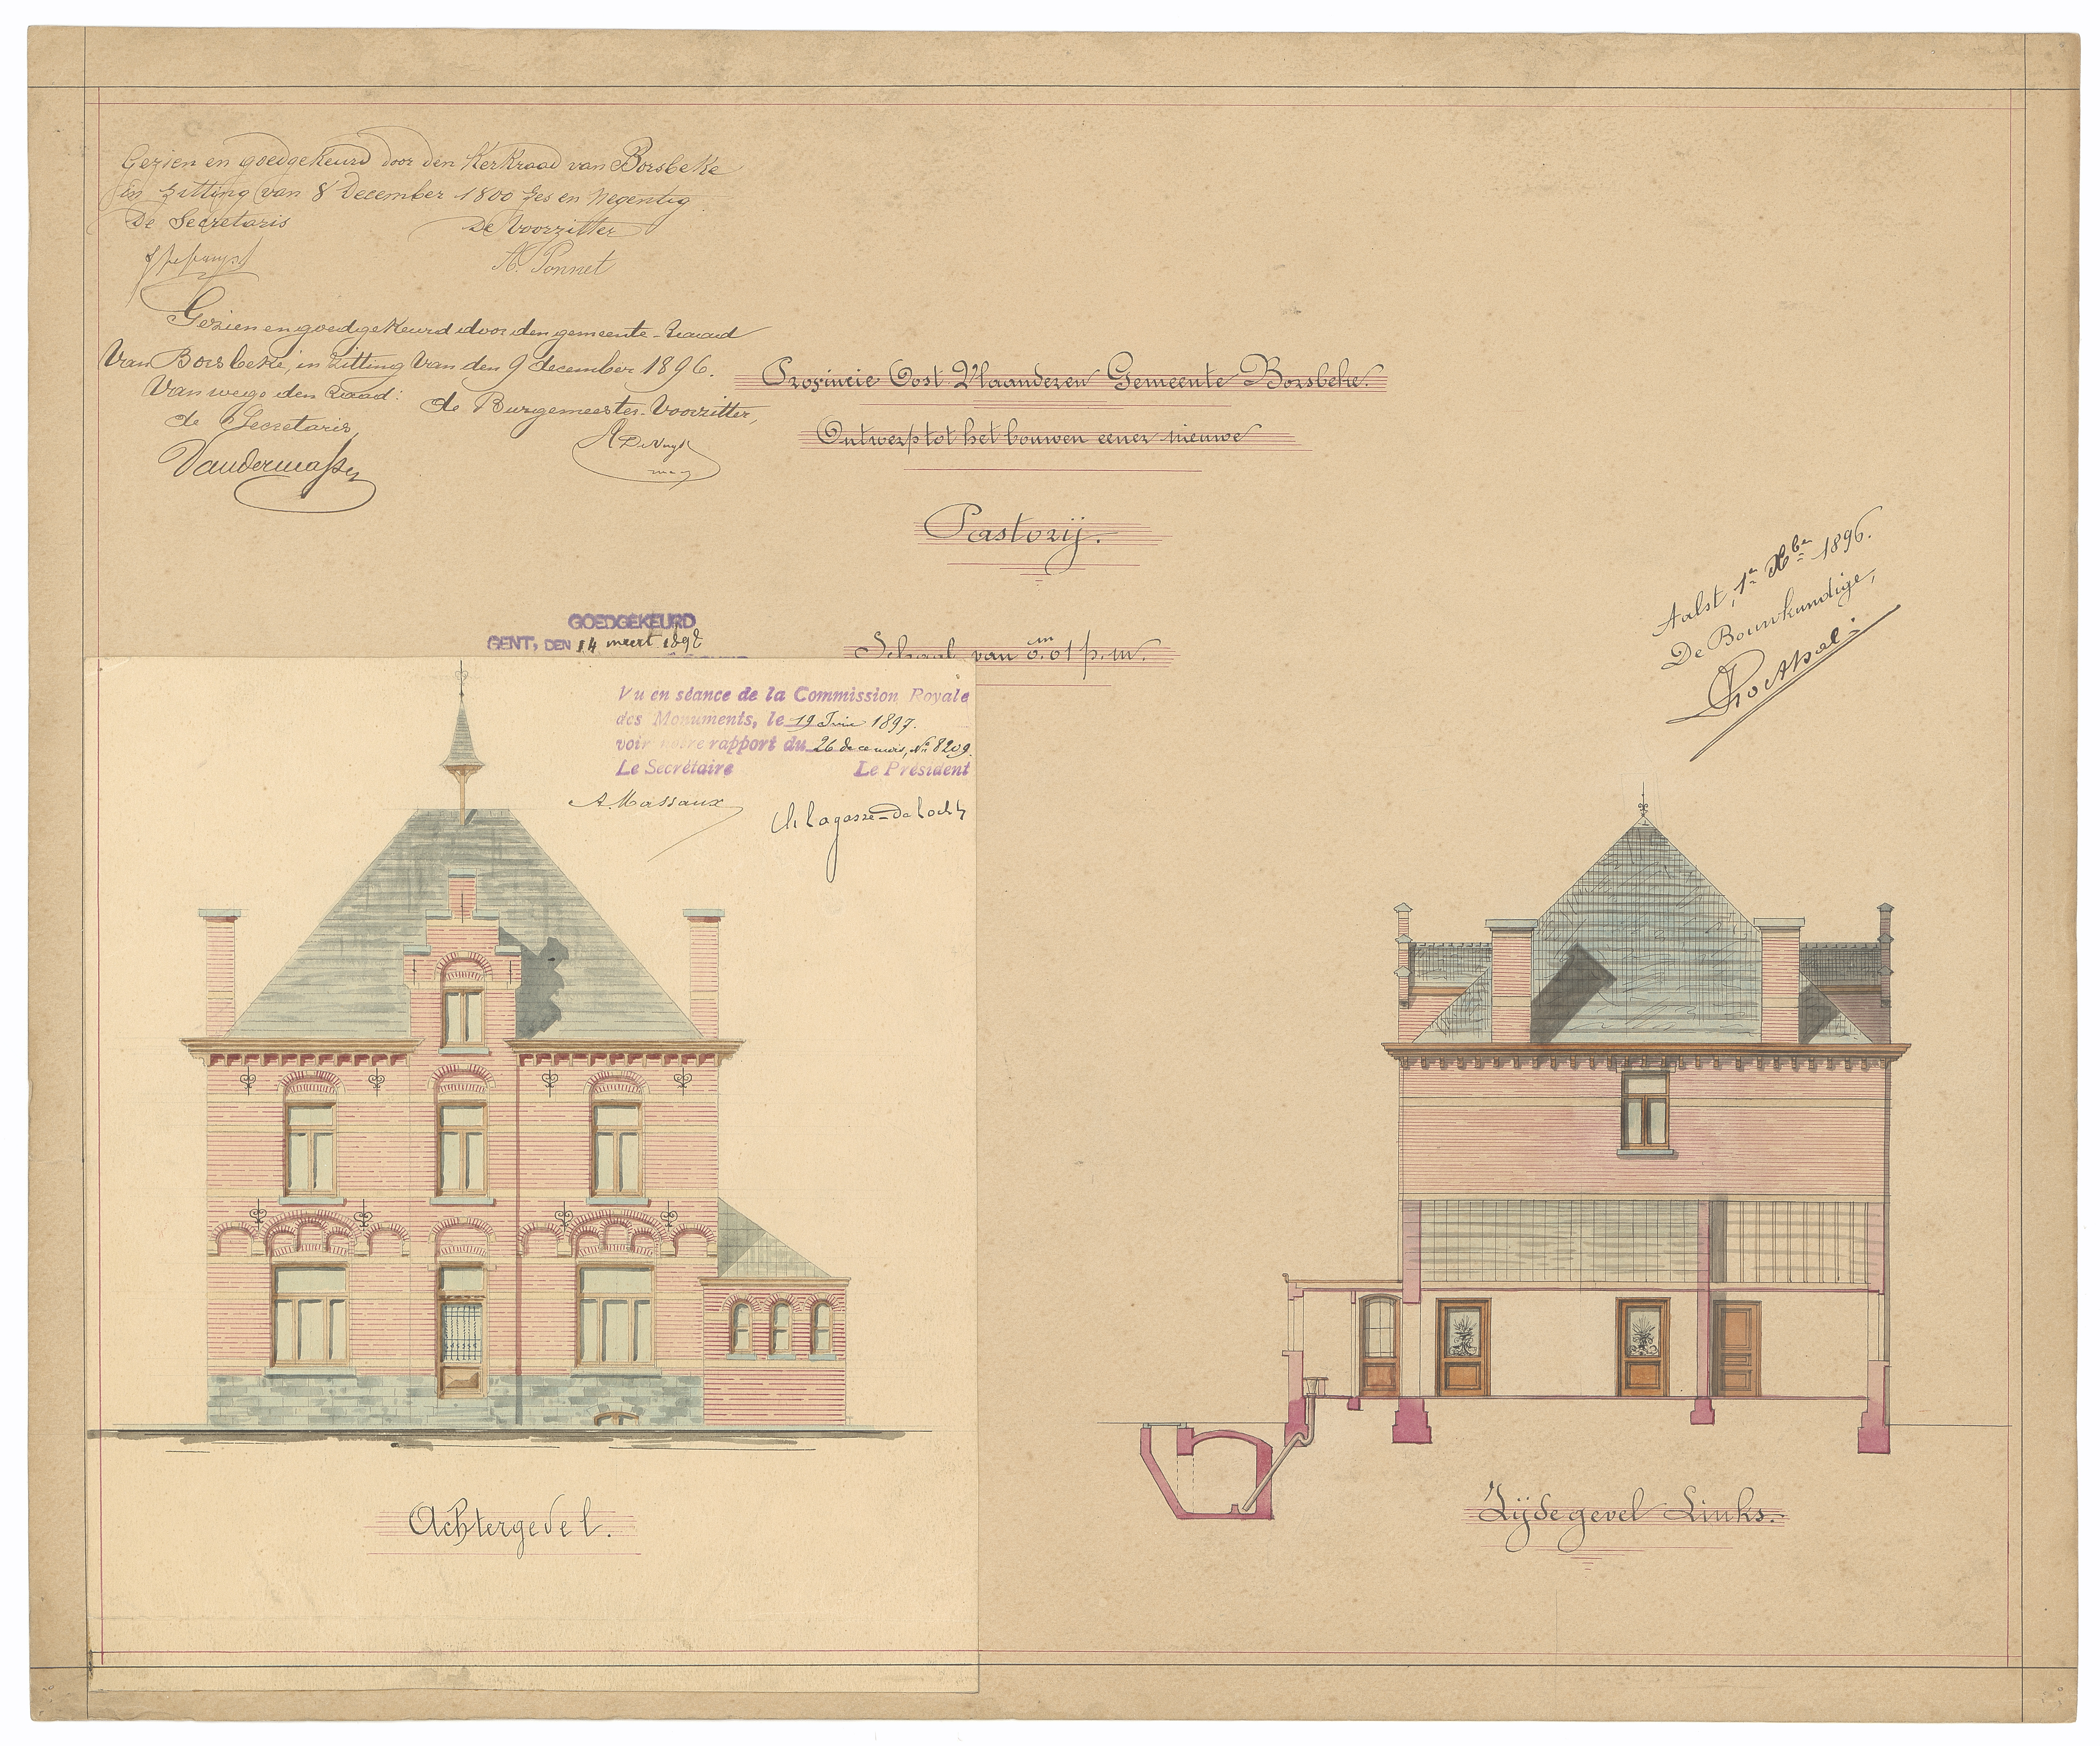 Gezien en goedgekeurd door den Kerkraad van Borsbeke
in zitting van 8 December 1800 zes en negentig.
De Secretaris De Voorzitter
A. Ponnet
Gezien en goedgekeurd door den gemeente-Raad
van Borsbeke, in zitting van den 9 december 1896.
Van wege den Raad:
de Secretaris, de Burgemeester-Voorzitter,
Provincie Oost Vlaanderen Gemeente Borsbeke.
Ontwerp tot het bouwen eener nieuwe
Pastorij.
Schaal van 0.01 p. m.
m
Aalst, 1n Xber 1896.
De Bouwkundige,
GOEDGEKEURD
GENT, DEN 14 meert 1898
Vu en séance de la Commission Royale
des Monuments, le 19 Juin 1897.
voir notre rapport du 26 de ce mois, No 8209.
Le Secrétaire Le Président
A. Massaux
Ch Lagasse-de Locht
Achtergevel.
Zijdegevel Links.